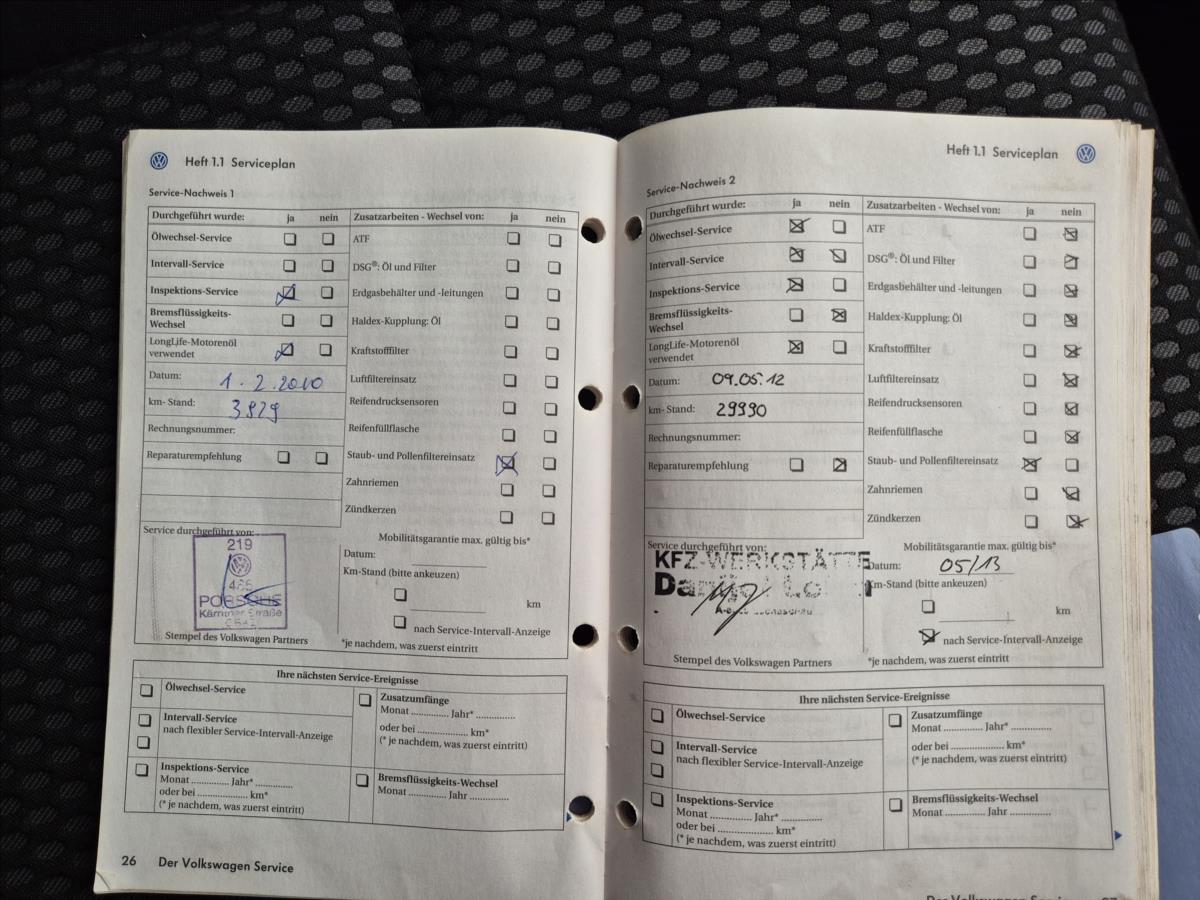 Heft 1.1 Serviceplan
Service-Nachweis 1
Durchgeführt wurde: ja nein Zusatzarbeiten - Wechsel von: ja nein
Ölwechsel-Service ATF
Intervall-Service DSG®: Öl und Filter
Inspektions-Service Erdgasbehälter und -leitungen
Bremsflüssigkeits-
Wechsel Haldex-Kupplung: Öl
LongLife-Motorenöl
verwendet Kraftstofffilter
Datum: 1.2.2010 Luftfiltereinsatz
km- Stand: 3929 Reifendrucksensoren
Rechnungsnummer: Reifenfüllflasche
Reparaturempfehlung Staub- und Pollenfiltereinsatz
Zahnriemen
Zündkerzen
Service durchgeführt von: Mobilitätsgarantie max. gültig bis*
219
Datum:
Km-Stand (bitte ankeuzen)
PORSCHE
Kärntner Straße
km
nach Service-Intervall-Anzeige
Stempel des Volkswagen Partners *je nachdem, was zuerst eintritt
Ihre nächsten Service-Ereignisse
Ölwechsel-Service Zusatzumfänge
Monat .............. Jahr* ..............
Intervall-Service
nach flexibler Service-Intervall-Anzeige oder bei .................. km*
(* je nachdem, was zuerst eintritt)
Inspektions-Service Bremsflüssigkeits-Wechsel
Monat .............. Jahr* .............. Monat .............. Jahr ..............
oder bei .................. km*
(* je nachdem, was zuerst eintritt)
26 Der Volkswagen Service
Heft 1.1 Serviceplan
Service-Nachweis 2
Durchgeführt wurde: ja nein Zusatzarbeiten - Wechsel von: ja nein
Ölwechsel-Service ATF
Intervall-Service DSG®: Öl und Filter
Inspektions-Service Erdgasbehälter und -leitungen
Bremsflüssigkeits-
Wechsel Haldex-Kupplung: Öl
LongLife-Motorenöl
verwendet Kraftstofffilter
Datum: 09.05.12 Luftfiltereinsatz
km- Stand: 29990 Reifendrucksensoren
Rechnungsnummer: Reifenfüllflasche
Reparaturempfehlung Staub- und Pollenfiltereinsatz
Zahnriemen
Zündkerzen
Service durchgeführt von: Mobilitätsgarantie max. gültig bis*
KFZ-WERKSTÄTTE
Datum: 05/13
Km-Stand (bitte ankeuzen)
km
nach Service-Intervall-Anzeige
Stempel des Volkswagen Partners *je nachdem, was zuerst eintritt
Ihre nächsten Service-Ereignisse
Ölwechsel-Service Zusatzumfänge
Monat .............. Jahr* ..............
Intervall-Service
nach flexibler Service-Intervall-Anzeige oder bei .................. km*
(* je nachdem, was zuerst eintritt)
Inspektions-Service Bremsflüssigkeits-Wechsel
Monat .............. Jahr* .............. Monat .............. Jahr ..............
oder bei .................. km*
(* je nachdem, was zuerst eintritt)
Der Volkswagen